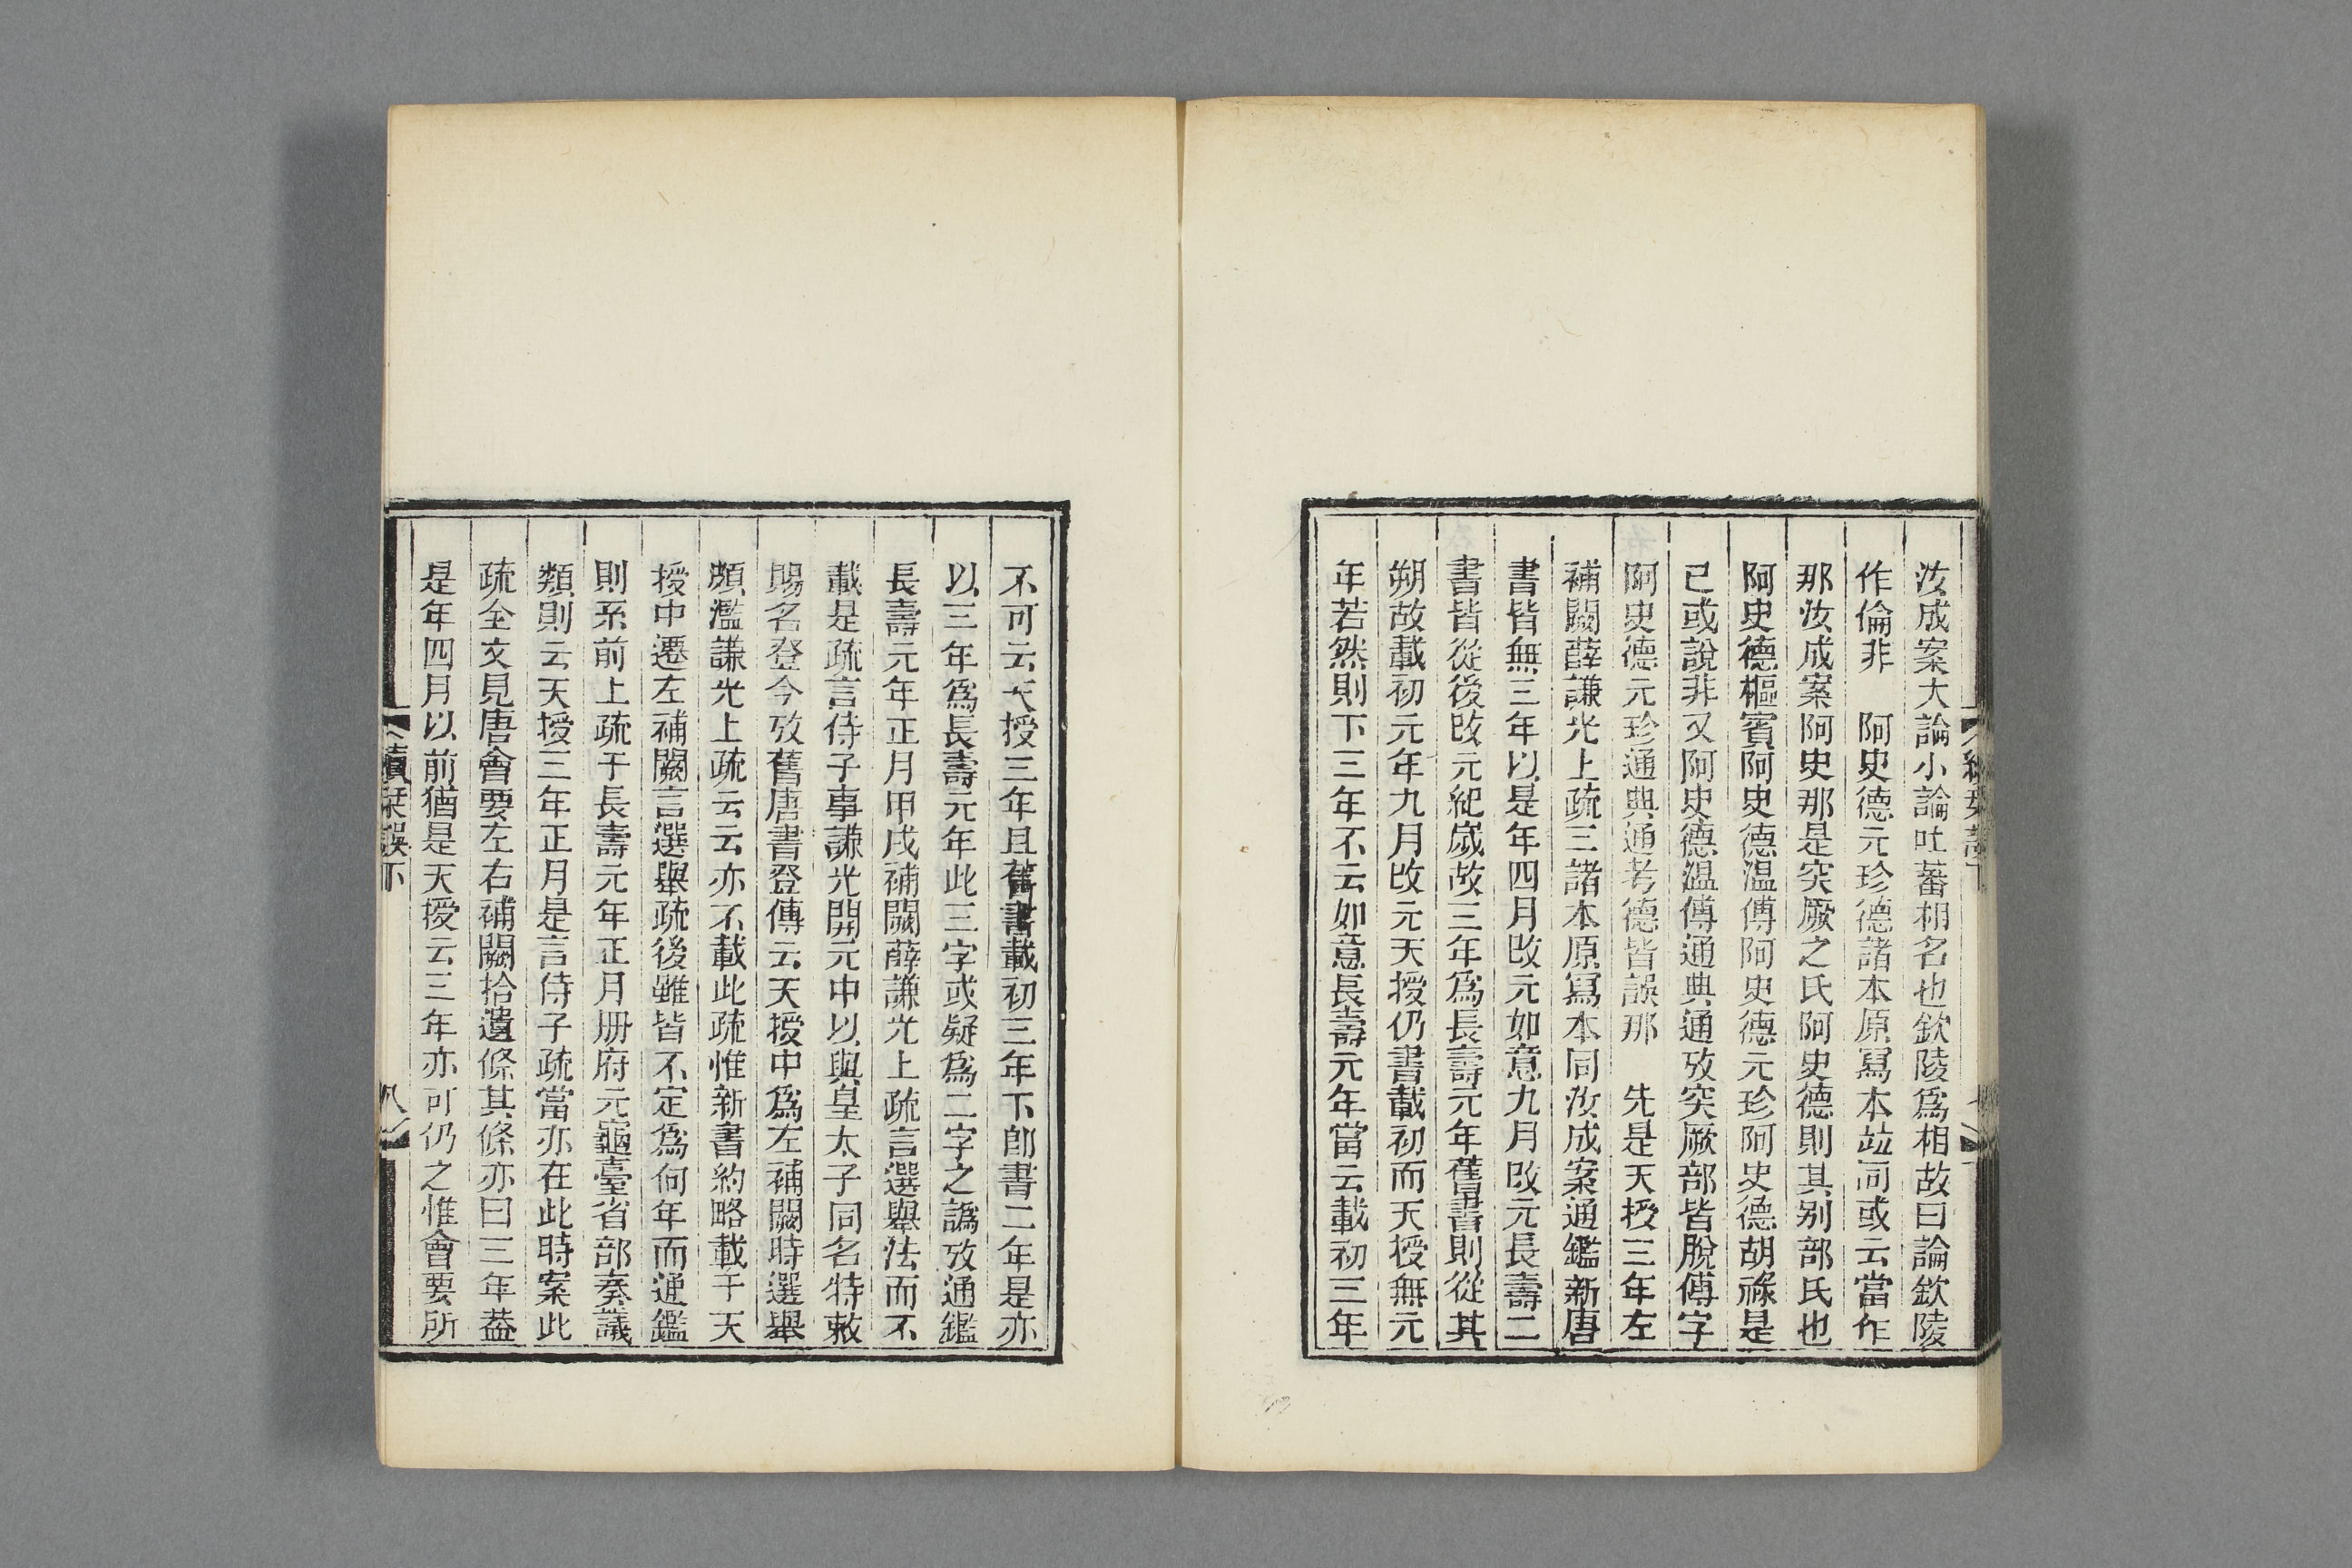 汝成案大論小論吐蕃相名也欽陵爲相故曰論欽陵
作倫非　阿史德元珍德諸本原寫本竝同或云當作
那汝成案阿史那是突厥之氏阿史德則其别部氏也
阿史德樞賓阿史德溫傅阿史德元珍阿史德胡祿是
已或說非又阿史德溫傅通典通攷突厥部皆脫傅字
阿史德元珍通典通考德皆誤那　先是天授三年左
補闕薛謙光上疏三諸本原寫本同汝成案通鑑新唐
書皆無三年以是年四月改元如意九月改元長壽二
書皆從後改元紀歲故三年爲長壽元年舊書則從其
朔故載初元年九月改元天授仍書載初而天授無元
年若然則下三年不云如意長壽元年當云載初三年
不可云天授三年且舊書載初三年下卽書二年是亦
以三年爲長壽元年此三字或疑爲二字之譌攷通鑑
長壽元年正月甲戌補闕薛謙光上疏言選舉法而不
載是疏言侍子事謙光開元中以與皇太子同名特敕
賜名登今攷舊唐書登傳云天授中爲左補闕時選舉
頗濫謙光上疏云云亦不載此疏惟新書約略載于天
授中遷左補闕言選舉疏後雖皆不定爲何年而通鑑
則系前上疏于長壽元年正月册府元龜臺省部奏議
類則云天授三年正月是言侍子疏當亦在此時案此
疏全文見唐會要左右補闕拾遺條其條亦曰三年葢
是年四月以前猶是天授云三年亦可仍之惟會要所
續栞誤下
八